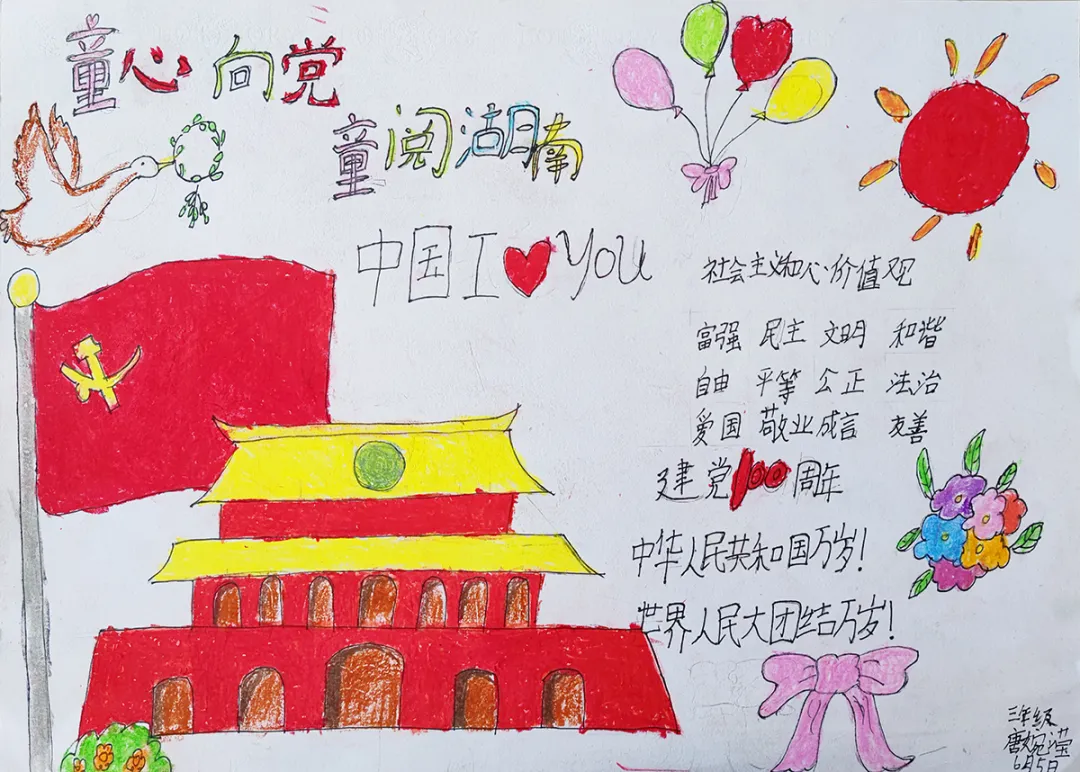 童心向党
童阅湖南
中国I❤You
社会主义和心价值观
富强 民主 文明 和谐
自由 平等 公正 法治
爱国 敬业 成言 友善
建党100周年
中华人民共和国万岁!
世界人民大团结万岁!
三年级
6月5日